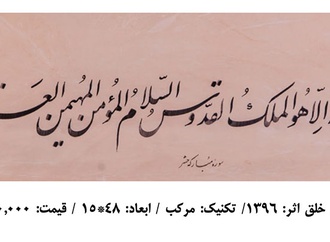 الا هو الملک القدوس السلام المؤمن المهیمن العز
سوره مبارکه حشر
خلق اثر: ۱۳۹۶/ تکنیک: مرکب / ابعاد: ۴۸*۱۵ / قیمت: ۰,۰۰۰